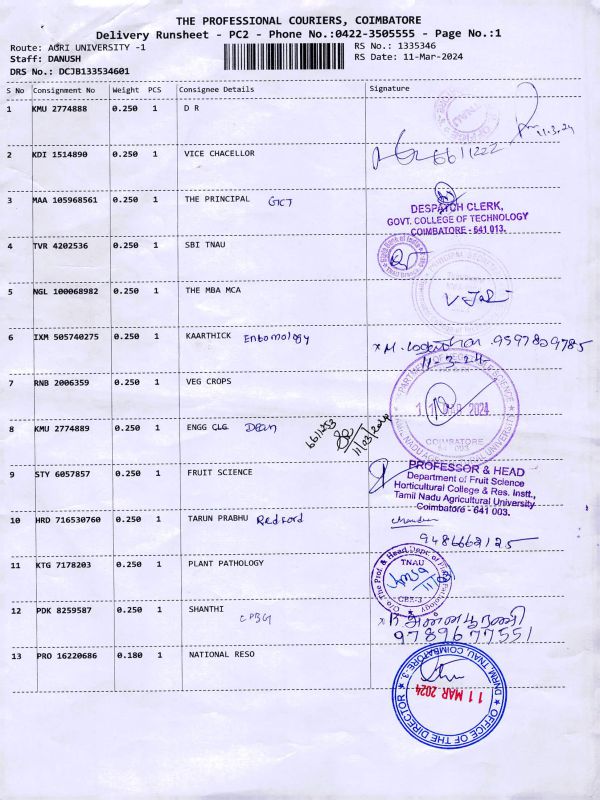 THE PROFESSIONAL COURIERS, COIMBATORE
Delivery Runsheet - PC2 - Phone No.:0422-3505555 - Page No.:1
Route: AGRI UNIVERSITY -1
RS No.: 1335346
Staff: DANUSH
RS Date: 11-Mar-2024
DRS No.: DCJB133534601
S No Consignment No Weight PCS Consignee Details Signature
1 KMU 2774888 0.250 1 D R
11.3.24
2 KDI 1514890 0.250 1 VICE CHACELLOR 6611222
3 MAA 105968561 0.250 1 THE PRINCIPAL GCT
DESPATCH CLERK,
GOVT. COLLEGE OF TECHNOLOGY
COIMBATORE - 641 013.
4 TVR 4202536 0.250 1 SBI TNAU
5 NGL 100068982 0.250 1 THE MBA MCA
6 IXM 505740275 0.250 1 KAARTHICK Entomology
9597809785
11-3-24
7 RNB 2006359 0.250 1 VEG CROPS
11 MAR 2024
COIMBATORE
8 KMU 2774889 0.250 1 ENGG CLG Dean
6611253
11/03/2024
9 STY 6057857 0.250 1 FRUIT SCIENCE
PROFESSOR & HEAD
Department of Fruit Science
Horticultural College & Res. Instt.,
Tamil Nadu Agricultural University
Coimbatore - 641 003.
10 HRD 716530760 0.250 1 TARUN PRABHU Redford
9486662125
11 KTG 7178203 0.250 1 PLANT PATHOLOGY
O/o The Prof & Head Dept. of Plant Pathology
TNAU
CBE-3
12 PDK 8259587 0.250 1 SHANTHI CPBG
அன்னபூரணி
9789677551
13 PRO 16220686 0.180 1 NATIONAL RESO
OFFICE OF THE DIRECTOR
DNRM, TNAU, COIMBATORE-3
11 MAR 2024